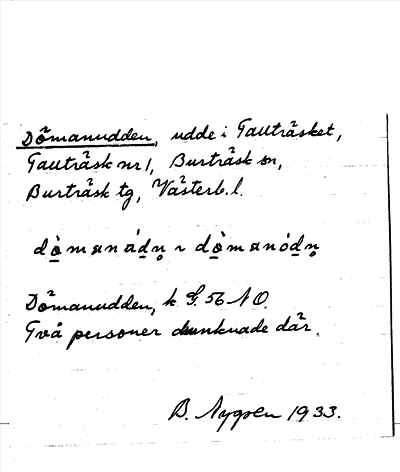 Dömanudden, udde i Gallträsket,
Gallträsk nr 1, Burträsk sn,
Burträsk tg, Västerb. l.
Dömanudden, k G. 56 NO.
Två personer drunknade där.
B. Nygren 1933.